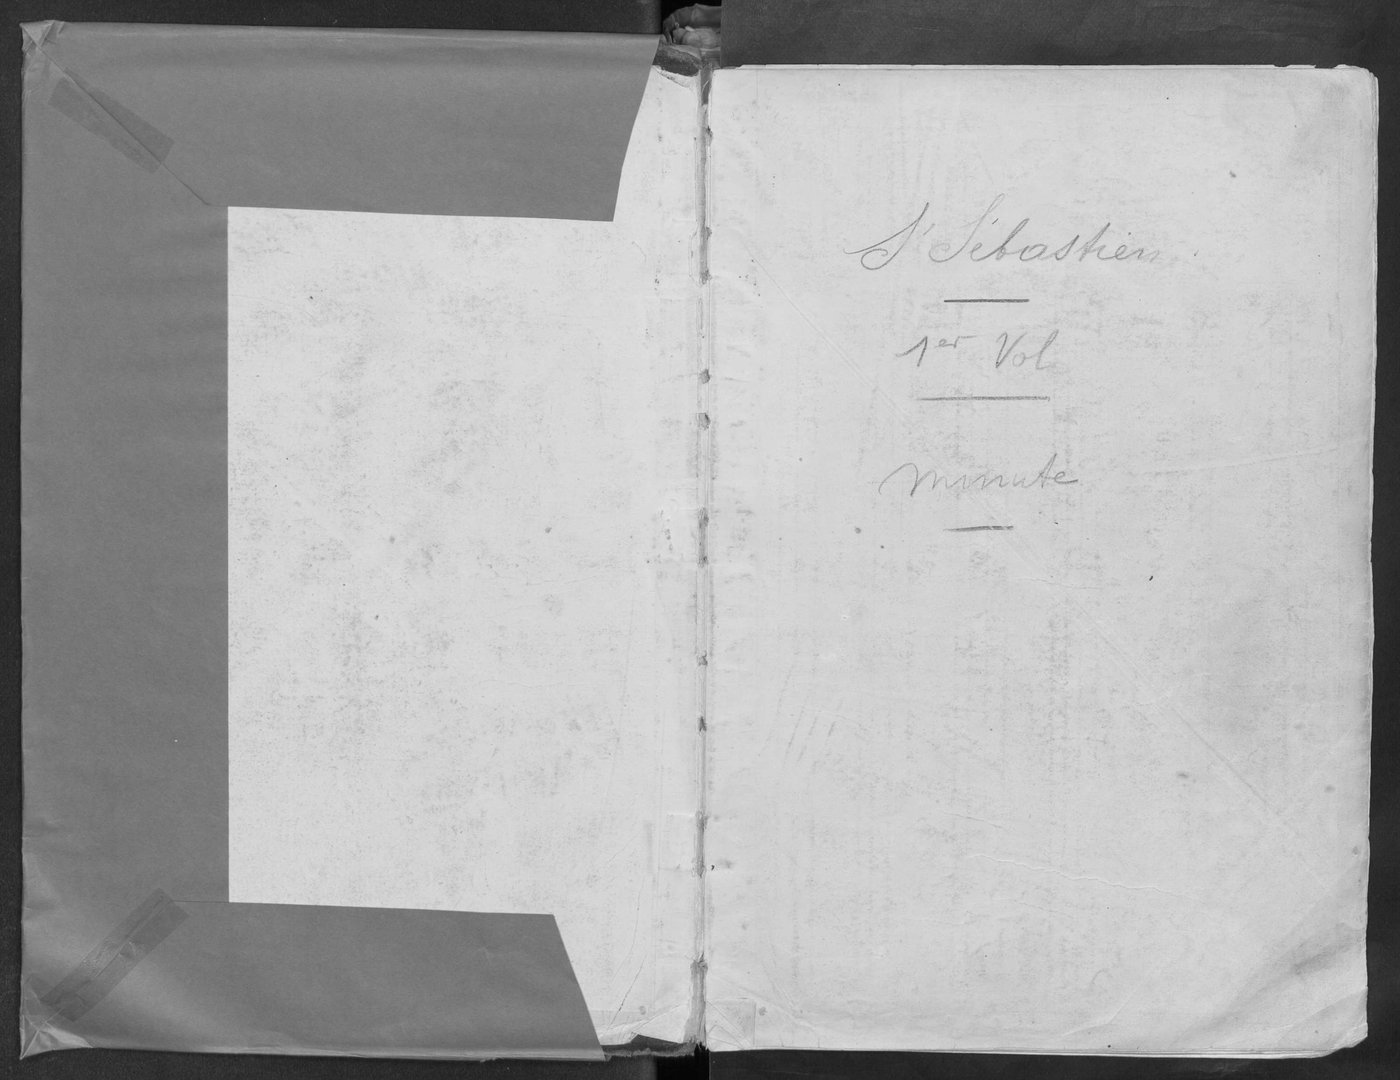 St Sébastien
1er Vol
minute